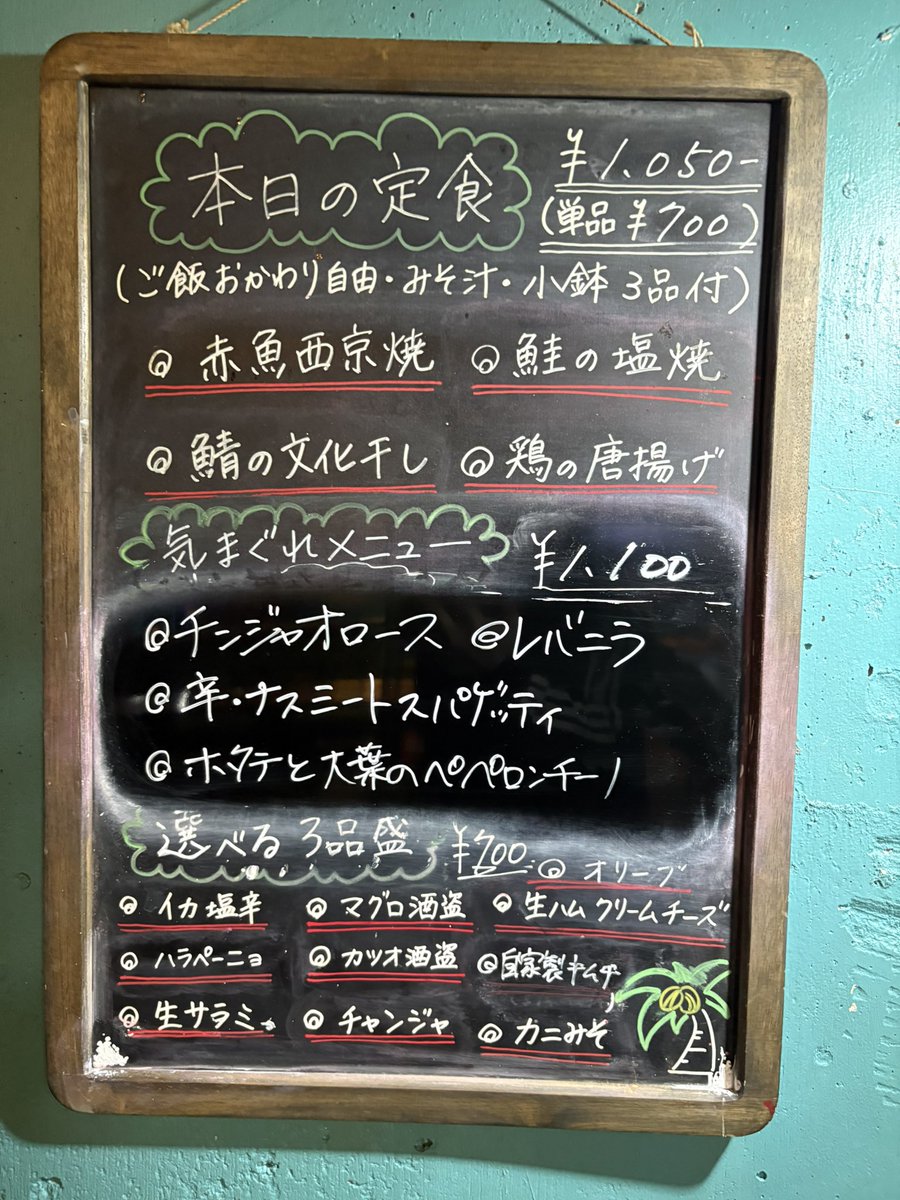 本日の定食 ¥1.050-
(単品¥700)
(ご飯おかわり自由・みそ汁・小鉢3品付)
◎ 赤魚西京焼 ◎ 鮭の塩焼
◎ 鯖の文化干し ◎ 鶏の唐揚げ
気まぐれメニュー ¥1.100
◎チンジャオロース ◎レバニラ
◎辛・ナスミートスパゲッティ
◎ホタテと大葉のペペロンチーノ
選べる3品盛 ¥700 ◎ オリーブ
◎ イカ塩辛 ◎ マグロ酒盗 ◎ 生ハムクリームチーズ
◎ ハラペーニョ ◎ カツオ酒盗 ◎自家製キムチ
◎ 生サラミ ◎ チャンジャ ◎ カニみそ